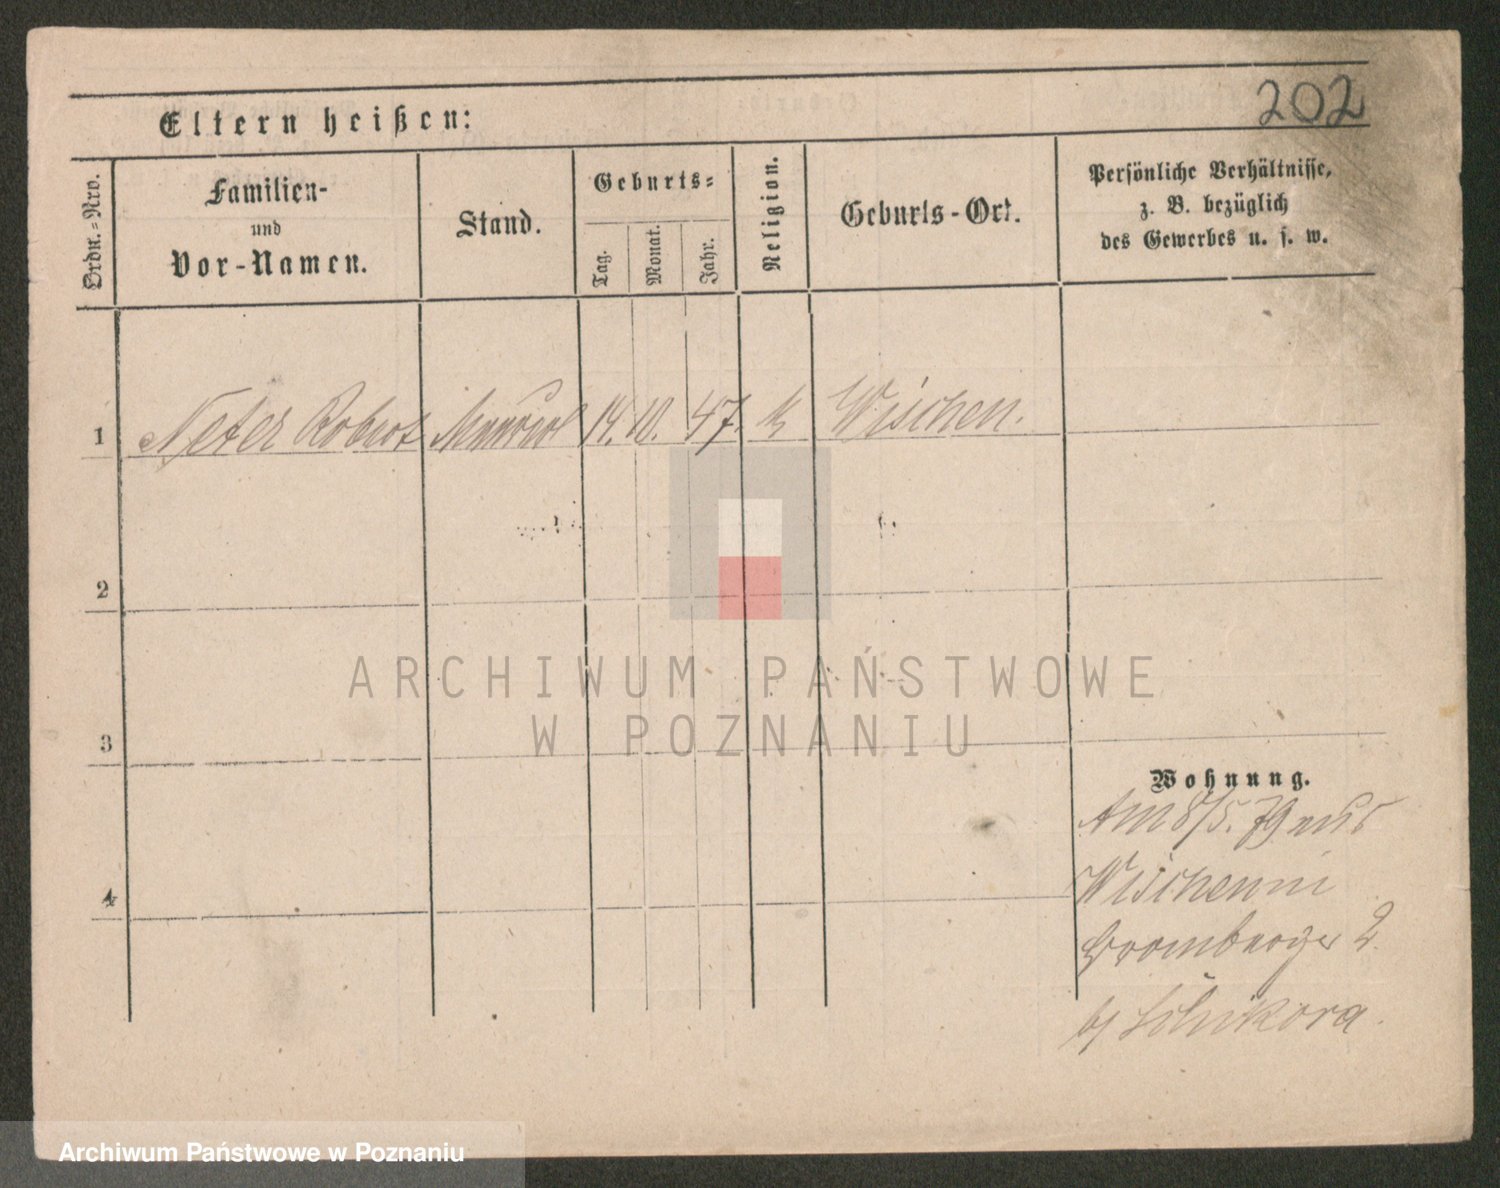 202
Eltern heißen:
Ordn.-Nro.
Familien-
und
Vor-Namen.
Stand.
Geburts-
Tag.
Monat.
Jahr.
Religion.
Geburts-Ort.
Persönliche Verhältnisse,
z. B. bezüglich
des Gewerbes u. s. w.
1 Neter Robert 14. 10. 47. k Wischen.
2
3
4
Wohnung.
Am 8/5. 79 aus
Wischen in
Bromberger 2.
b/
ARCHIWUM PAŃSTWOWE
W POZNANIU
Archiwum Państwowe w Poznaniu